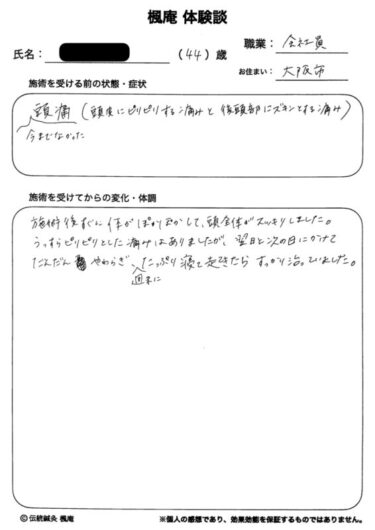 楓庵 体験談
氏名： （44）歳
職業： 会社員
お住まい： 大阪市
施術を受ける前の状態・症状
頭痛（頭皮にピリピリする痛みと後頭部にズキンとする痛み）
今までなかった
施術を受けてからの変化・体調
施術後すぐに体がぽかぽかして、頭全体がスッキリしました。
うっすらピリピリとした痛みはありましたが、翌日と次の日にかけて
だんだん やわらぎ、たっぷり寝て起きたら すっかり治っていました。
週末に
© 伝統鍼灸 楓庵
※個人の感想であり、効果効能を保証するものではありません。